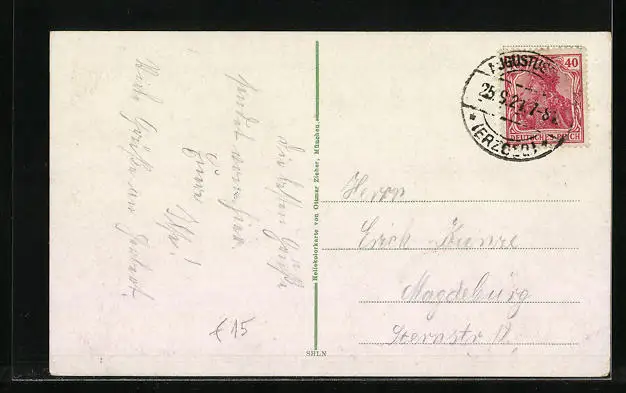 Die besten Grüße
sendet von hier
Euer
Viele Grüße an
Heliokolorkarte von Ottmar Zieher, München.
SHLN
€15
AUGUSTUS
25.9.21.7-8
*(ERZGEB.)*
40
DEUTSCHES REICH
Herrn
Erich Kunze
Magdeburg
Sternstr